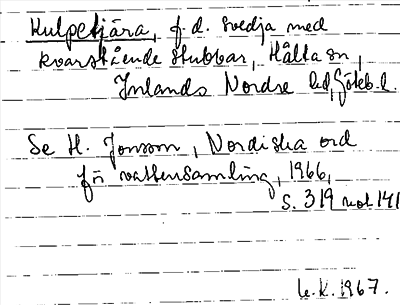 Kulpekjära, f.d. svedja med
kvarstående stubbar, Hålta sn,
Inlands Nordre hd, Göteb.l.
Se H. Jonsson, Nordiska ord
för vattensamling, 1966,
s. 319 not 141
1967.